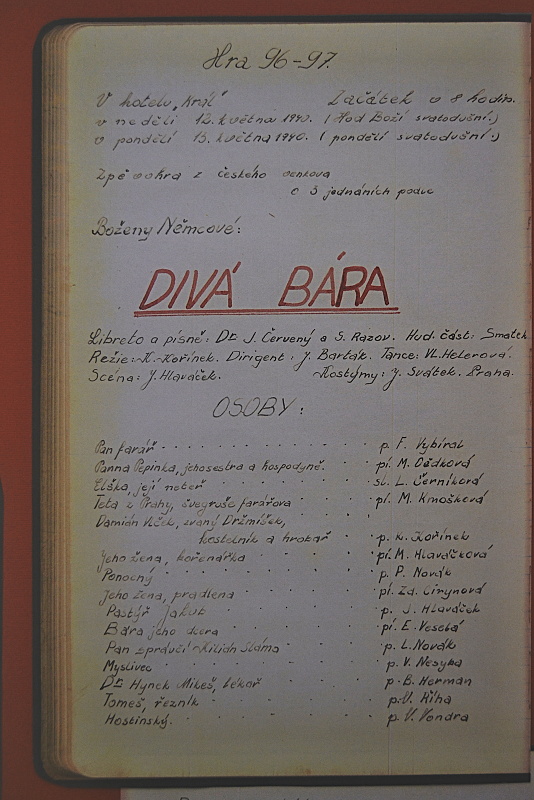 Hra 96-97.
V hotelu „Král" Začátek o 8 hodin.
v neděli 12. května 1940. (Hod Boží svatodušní.)
v pondělí 13. května 1940. (pondělí svatodušní.)
Zpěvohra z českého venkova
o 3 jednáních podle
Boženy Němcové:
DIVÁ BÁRA
Libreto a písně: Dr. J. Červený a S. Razov. Hud. část: Smatek
Režie: K. Kořínek. Dirigent: J. Barták. Tance: Vl. Heterová.
Scéna: J. Hlaváček. Kostýmy: J. Svátek. Praha.
OSOBY:
Pan farář p. F. Vybíral
Panna Pepinka, jeho sestra a hospodyně. pí. M. Dědková
Elška, její neteř sl. L. Černíková
Teta z Prahy, švegruše farářova pí. M. Kmošková
Damián Vlček, zvaný Držmíšek,
kostelník a hrobař p. K. Kořínek
Jeho žena, kořenářka pí. M. Hlaváčková
Ponocný p. P. Novák
Jeho žena, pradlena pí. Zd. Cirynová
Pastýř Jakub p. J. Hlaváček
Bára jeho dcera pí. E. Veselá
Pan správčí Kilián Sláma p. L. Novák
Myslivec p. V. Nesyba
Dr. Hynek Mikeš, lékař p. B. Herman
Tomeš, řezník p. V. Říha
Hostinský. p. V. Vondra